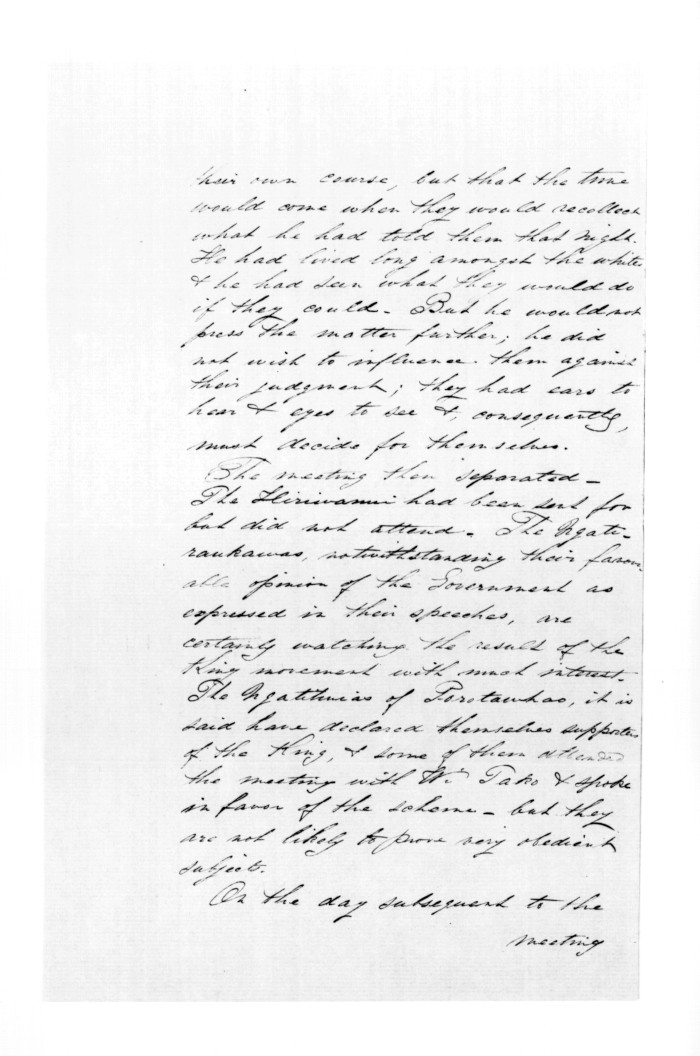 their own course, but that the time
would come when they would recollect
what he had told them that night.
He had lived long amongst the whites
& he had seen what they would do
if they could - But he would not
press the matter further; he did
not wish to influence them against
their judgment; they had ears to
hear & eyes to see &, consequently,
must decide for themselves.
The meeting then separated -
The had been sent for
but did not attend. The Ngati-
raukawas, notwithstanding their favour-
able opinion of the Government as
expressed in their speeches, are
certainly watching the result of the
King movement with much interest.
The of it is
said have declared themselves supporters
of the King, & some of them attended
the meeting with Wi Tako & spoke
in favor of the scheme - but they
are not likely to prove very obedient
subjects.
On the day subsequent to the
meeting